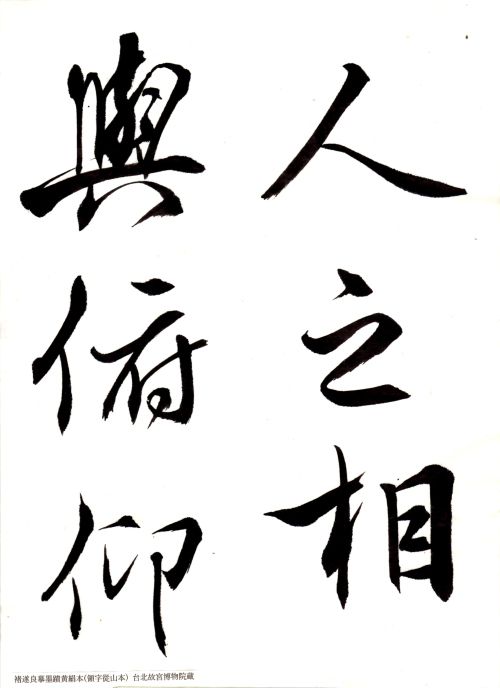 人之相
與俯仰
褚遂良摹墨蹟黄絹本(領字從山本) 台北故宮博物院藏